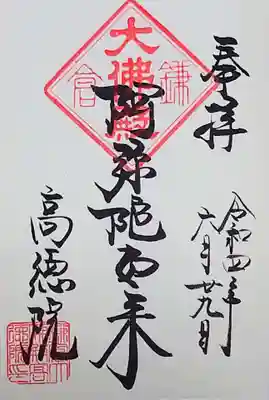 奉拝
令和四年
六月廿九日
大佛殿
鎌倉
阿弥陀如来
高徳院